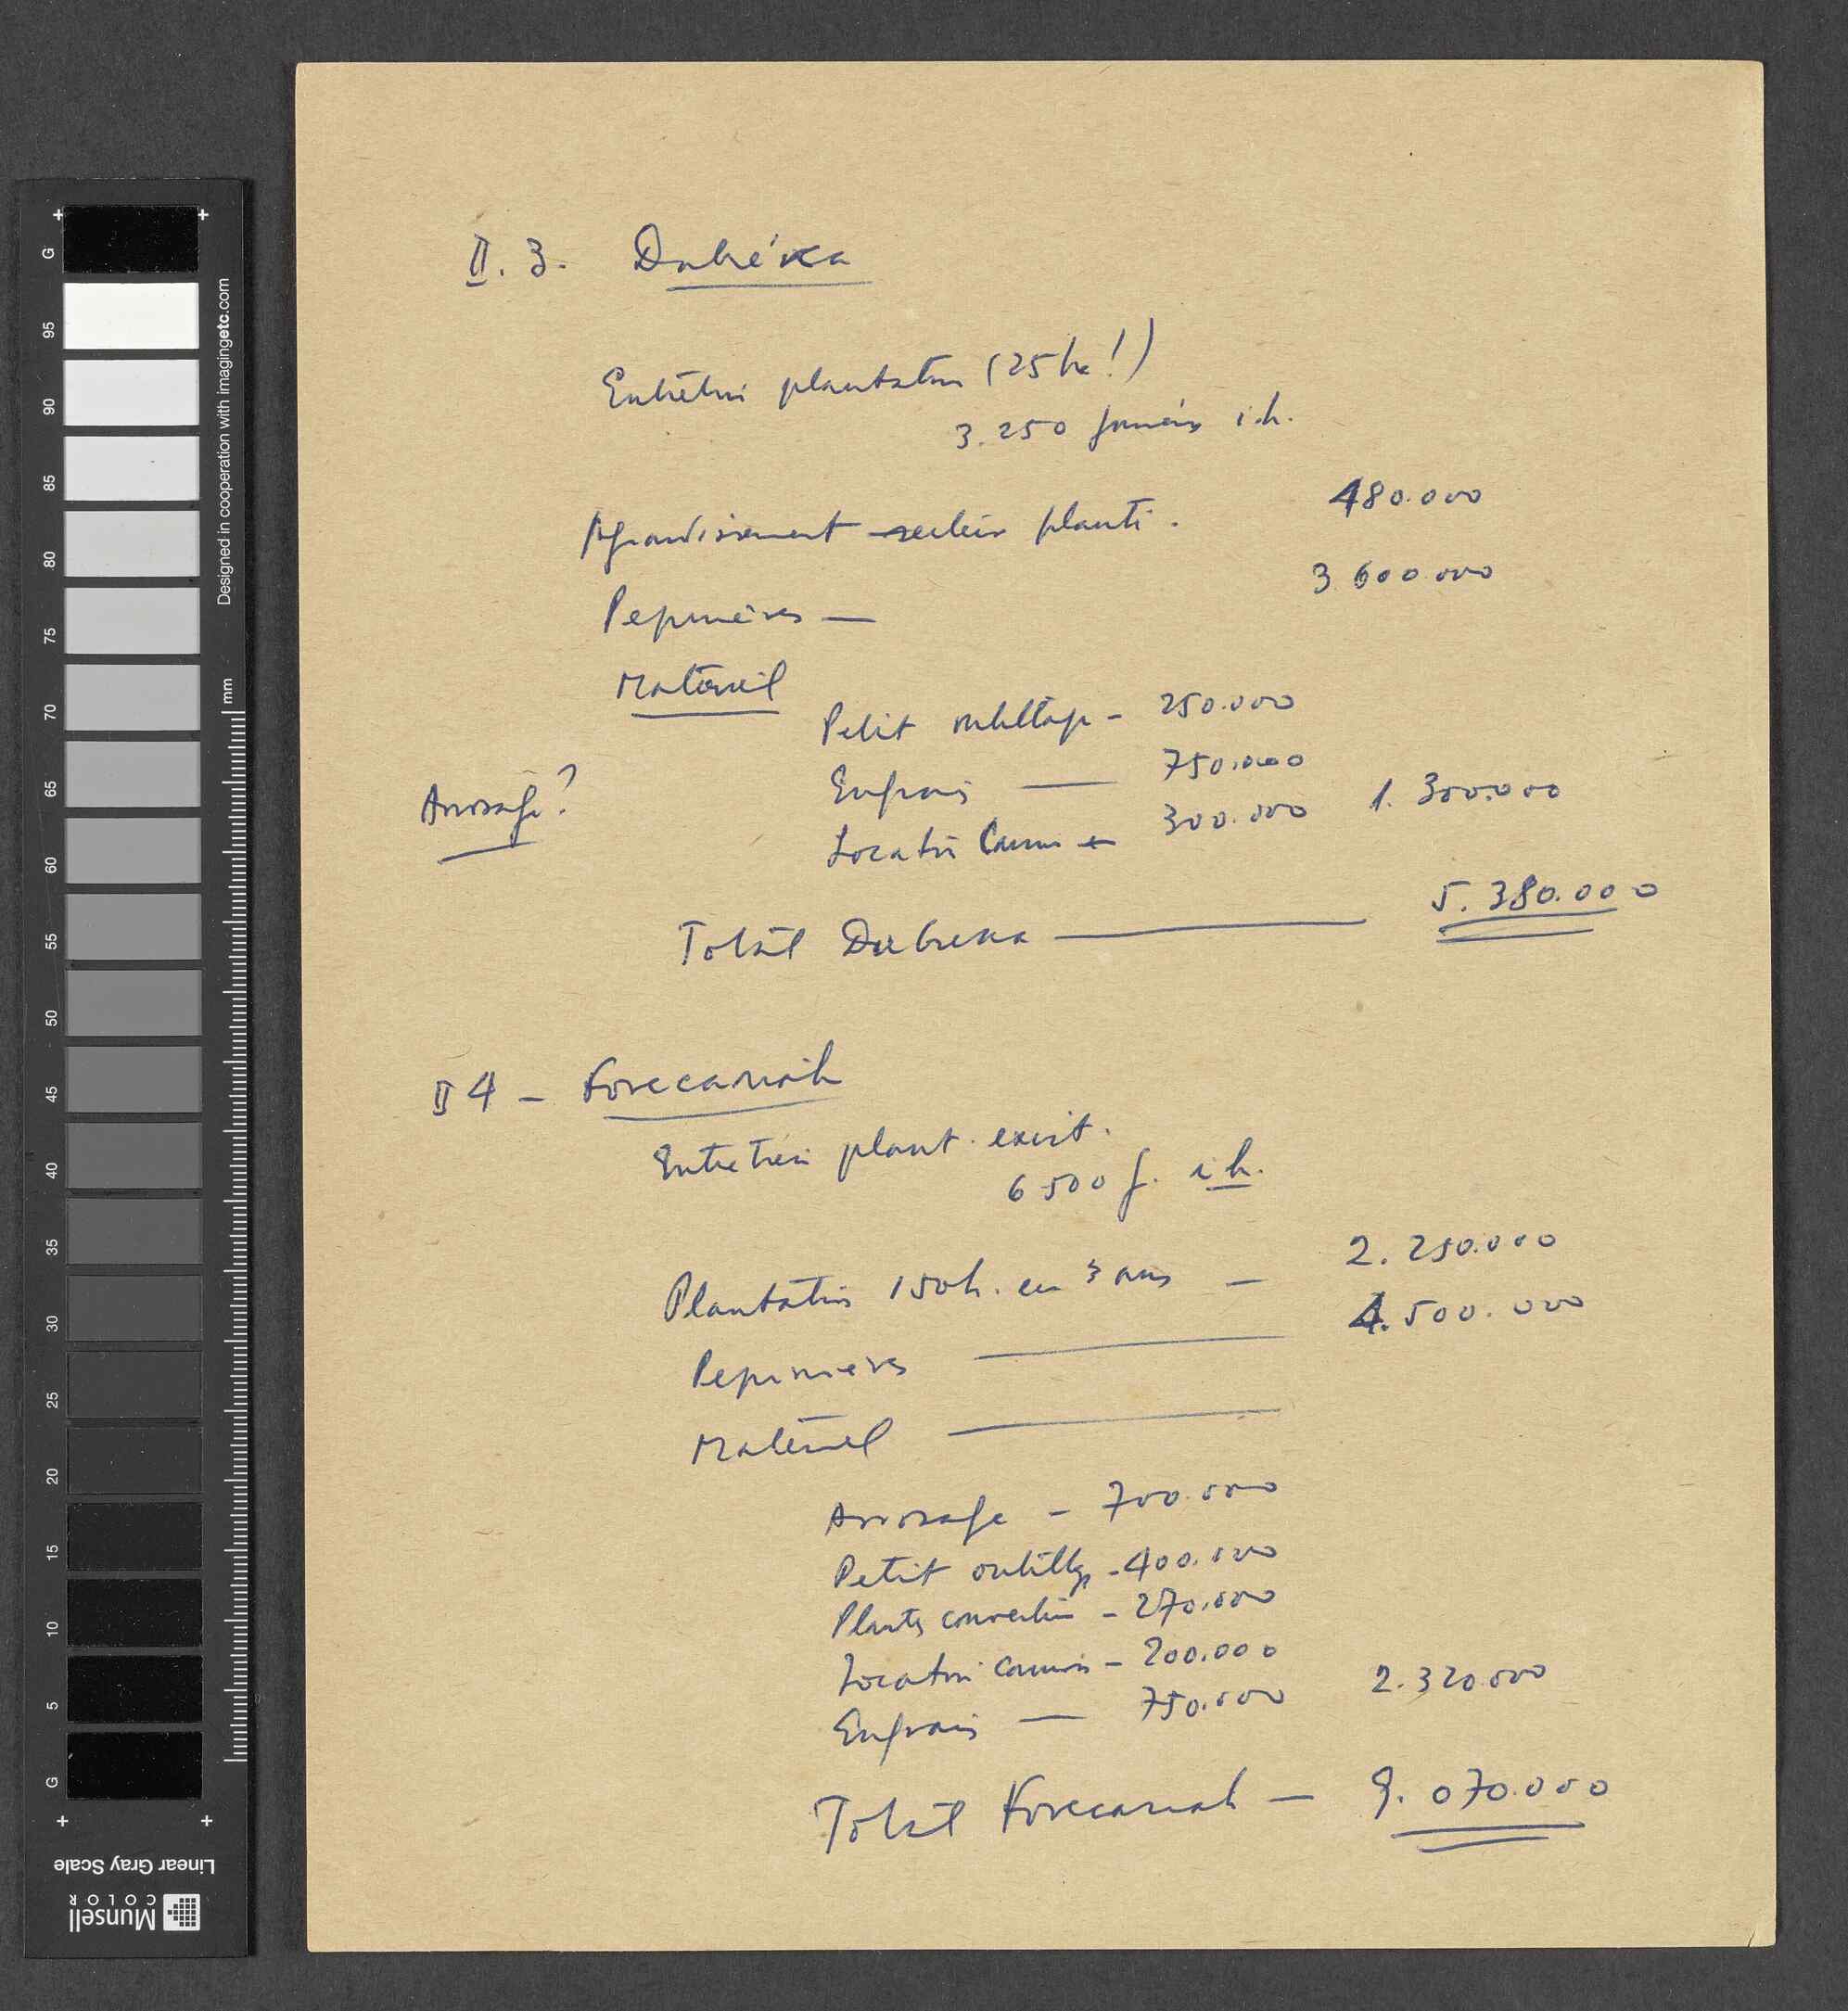 II. 3. Dubréka
Entretien plantation (25 ha!)
3.250 journées i.h.
Agrandissement secteur planté. 480.000
Pepinières — 3 600 000
Matériel
Petit outillage - 250.000
Engrais — 750.000
Arrosage?
Location Camion - 300.000 1. 300.000
Total Dubreka — 5. 380.000
II 4 - Forecariah
Entretien plant. exist.
6 500 j. i.h.
Plantation 150h. en 3 ans - 2. 250.000
Pepinieres — 4.500.000
Matériel —
Arrosage - 700.000
Petit outillge - 400.000
Plants couverture - 270.000
Location camion - 200.000
Engrais — 750.000 2. 320.000
Total Forecariah - 9. 070.000
G
95
90
85
80
75
70
65
60
55
50
45
40
35
30
25
20
15
10
5
G
mm
Designed in cooperation with imagingetc.com
Linear Gray Scale
Munsell
COLOR